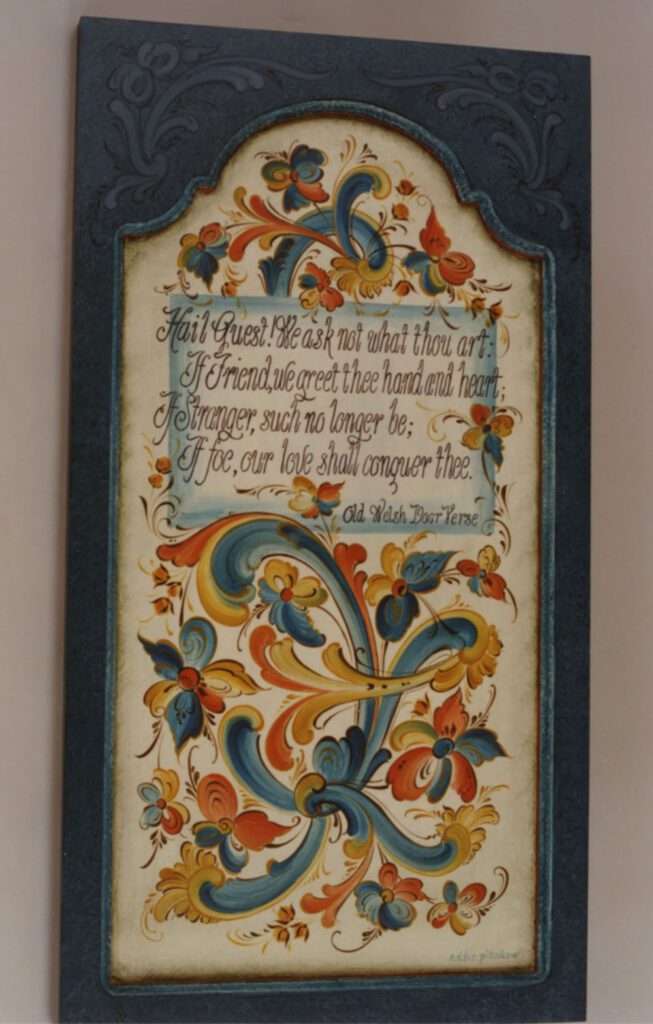 Hail Guest! We ask not what thou art:
If Friend, we greet thee hand and heart;
If Stranger, such no longer be;
If foe, our love shall conquer thee.
Old Welsh Door Verse
eddie